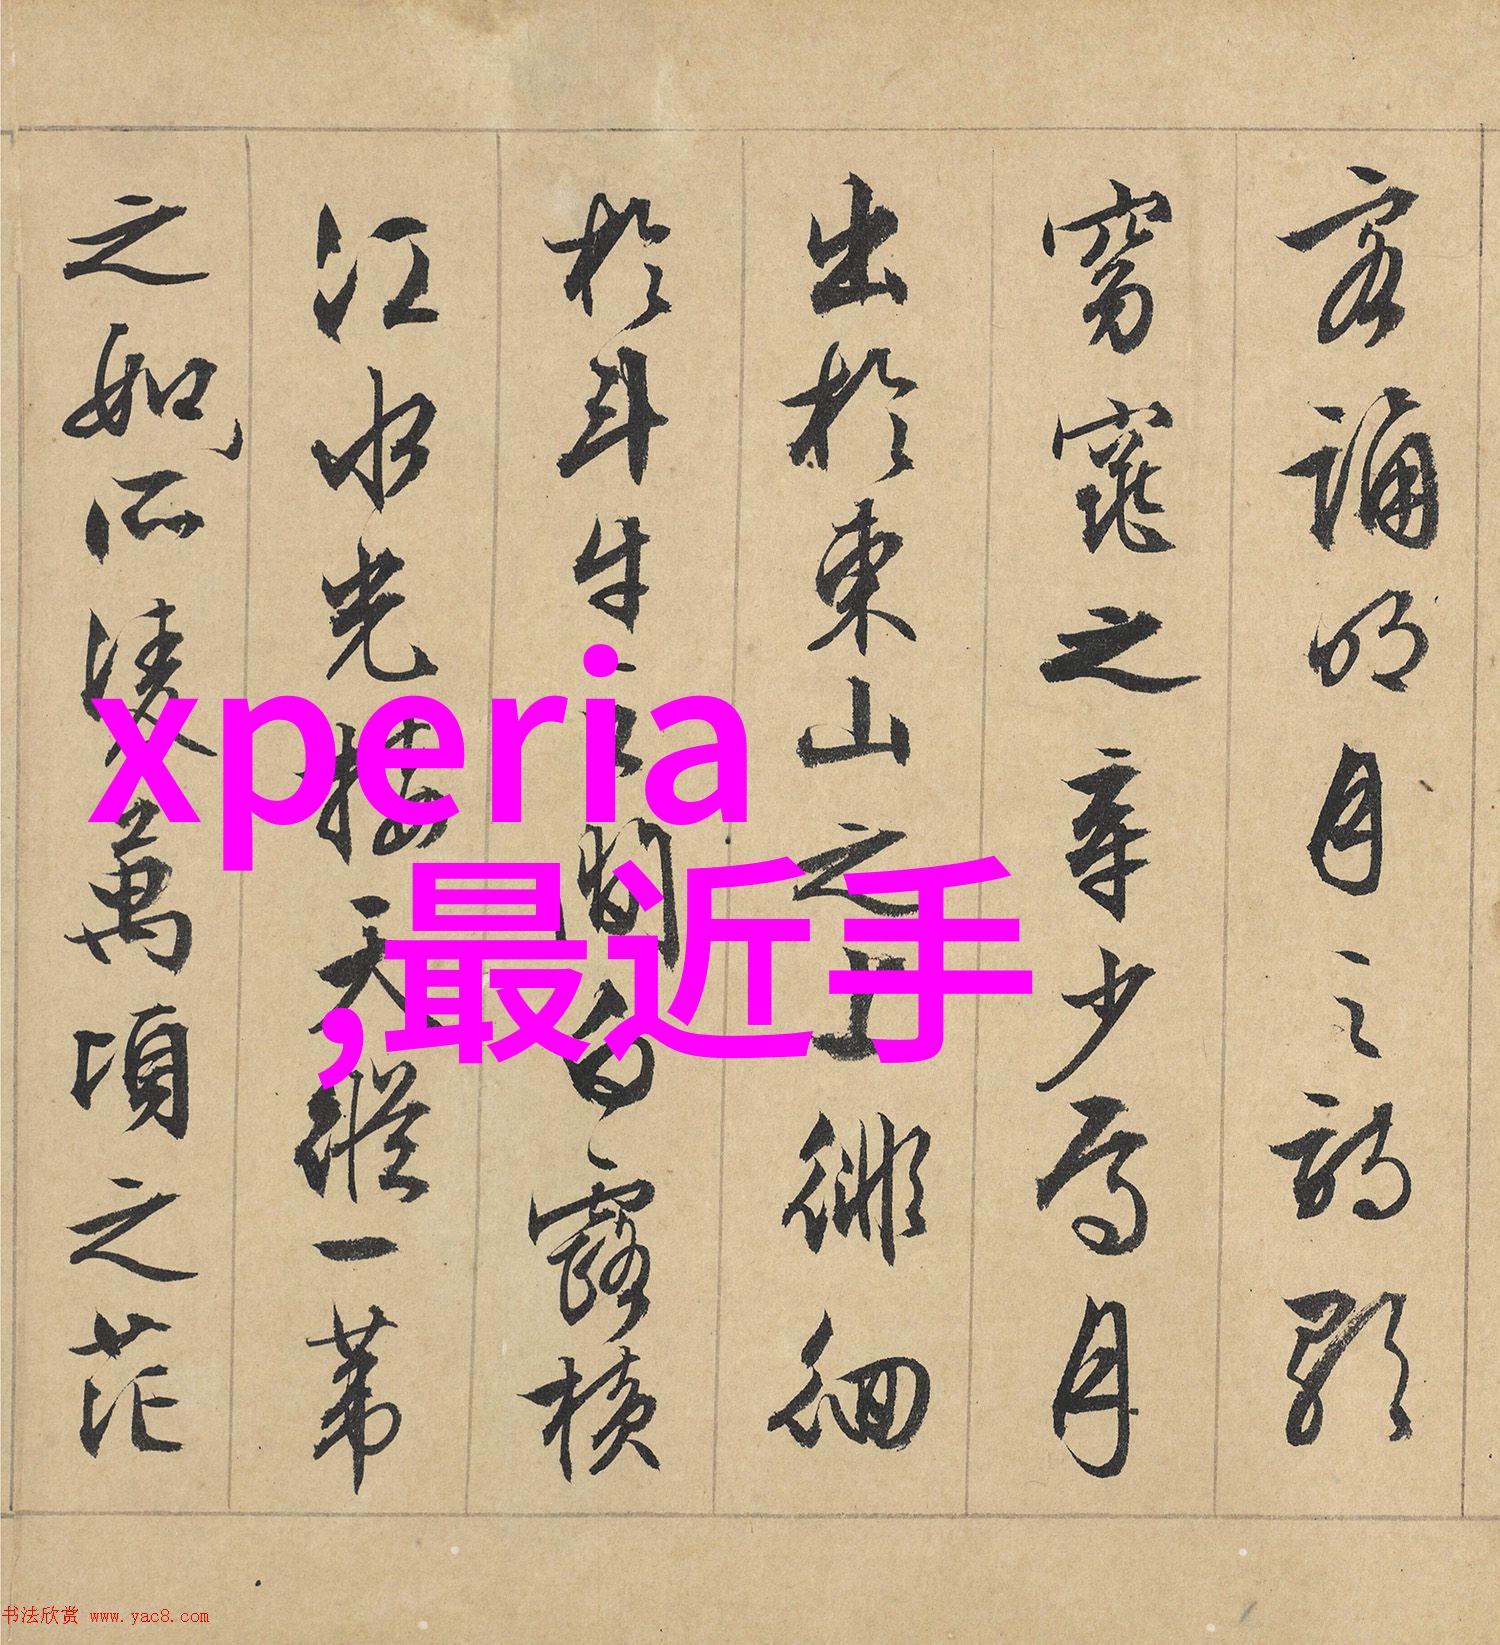 客誦明月之詩歌
窈窕之章少焉月
出於東山之上徘徊
於斗牛之間白露橫
江水光接天縱一葦
之如所淩萬頃之茫
xperia
,最近手
书法欣赏 www.yac8.com